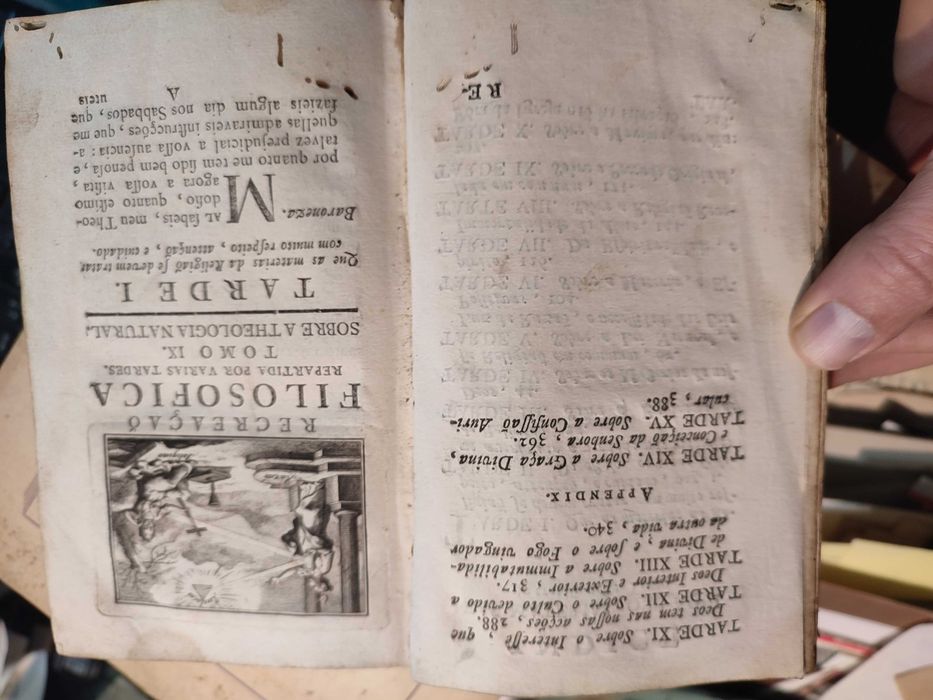 TARDE XI. Sobre o Intereſſe, que
Deos tem nas noſſas acções, 288.
TARDE XII. Sobre o Culto devido a
Deos Interior e Exterior, 317.
TARDE XIII. Sobre a Immutabilida-
de Divina, e ſobre o Fogo vingador
da outra vida, 340.
APPENDIX.
TARDE XIV. Sobre a Graça Divina,
e Conceiçaõ da Senhora, 362.
TARDE XV. Sobre a Confiſſaõ Auri-
cular, 388.
RE-
RECREAÇAÕ
FILOSOFICA
REPARTIDA POR VARIAS TARDES.
TOMO IX.
SOBRE A THEOLOGIA NATURAL.
TARDE I.
Que as materias da Religiaõ ſe devem tratar
com muito reſpeito, attençaõ, e cuidado.
Baroneza. MAL ſabeis, meu Theo-
doſio, quanto eſtimo
agora a voſſa viſita,
por quanto me tem ſido bem penoſa, e
talvez prejudicial a voſſa auſencia: a-
quellas admiraveis inſtrucções, que me
fazieis algum dia nos Sabbados, que
A
uteis